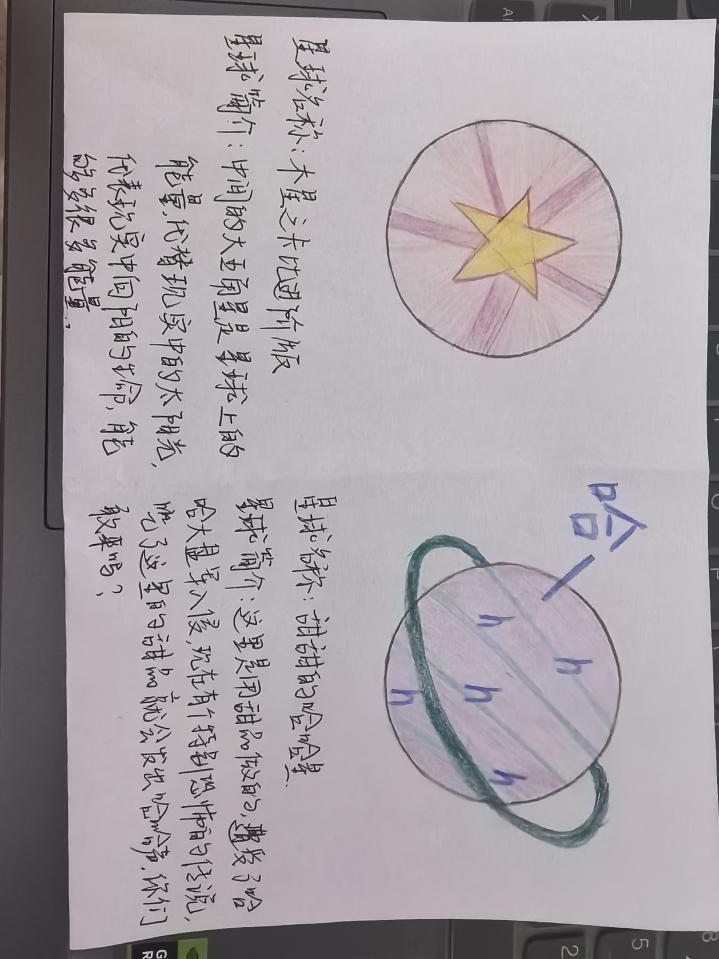 星球名称：木星之卡比进阶版
星球简介：中间的大五角星是星球上的
能量，代替现实中的太阳光，
代表现实中向阳的生命，能
够多很多能量。
哈
h
h
h
h
h
星球名称：甜甜的哈哈星
星球简介：这里是用甜品做的，遭受了哈
哈大星军入侵，现在有个特别恐怖的传说，
吃了这里的甜品就会发出哈哈声，你们
敢来吗？